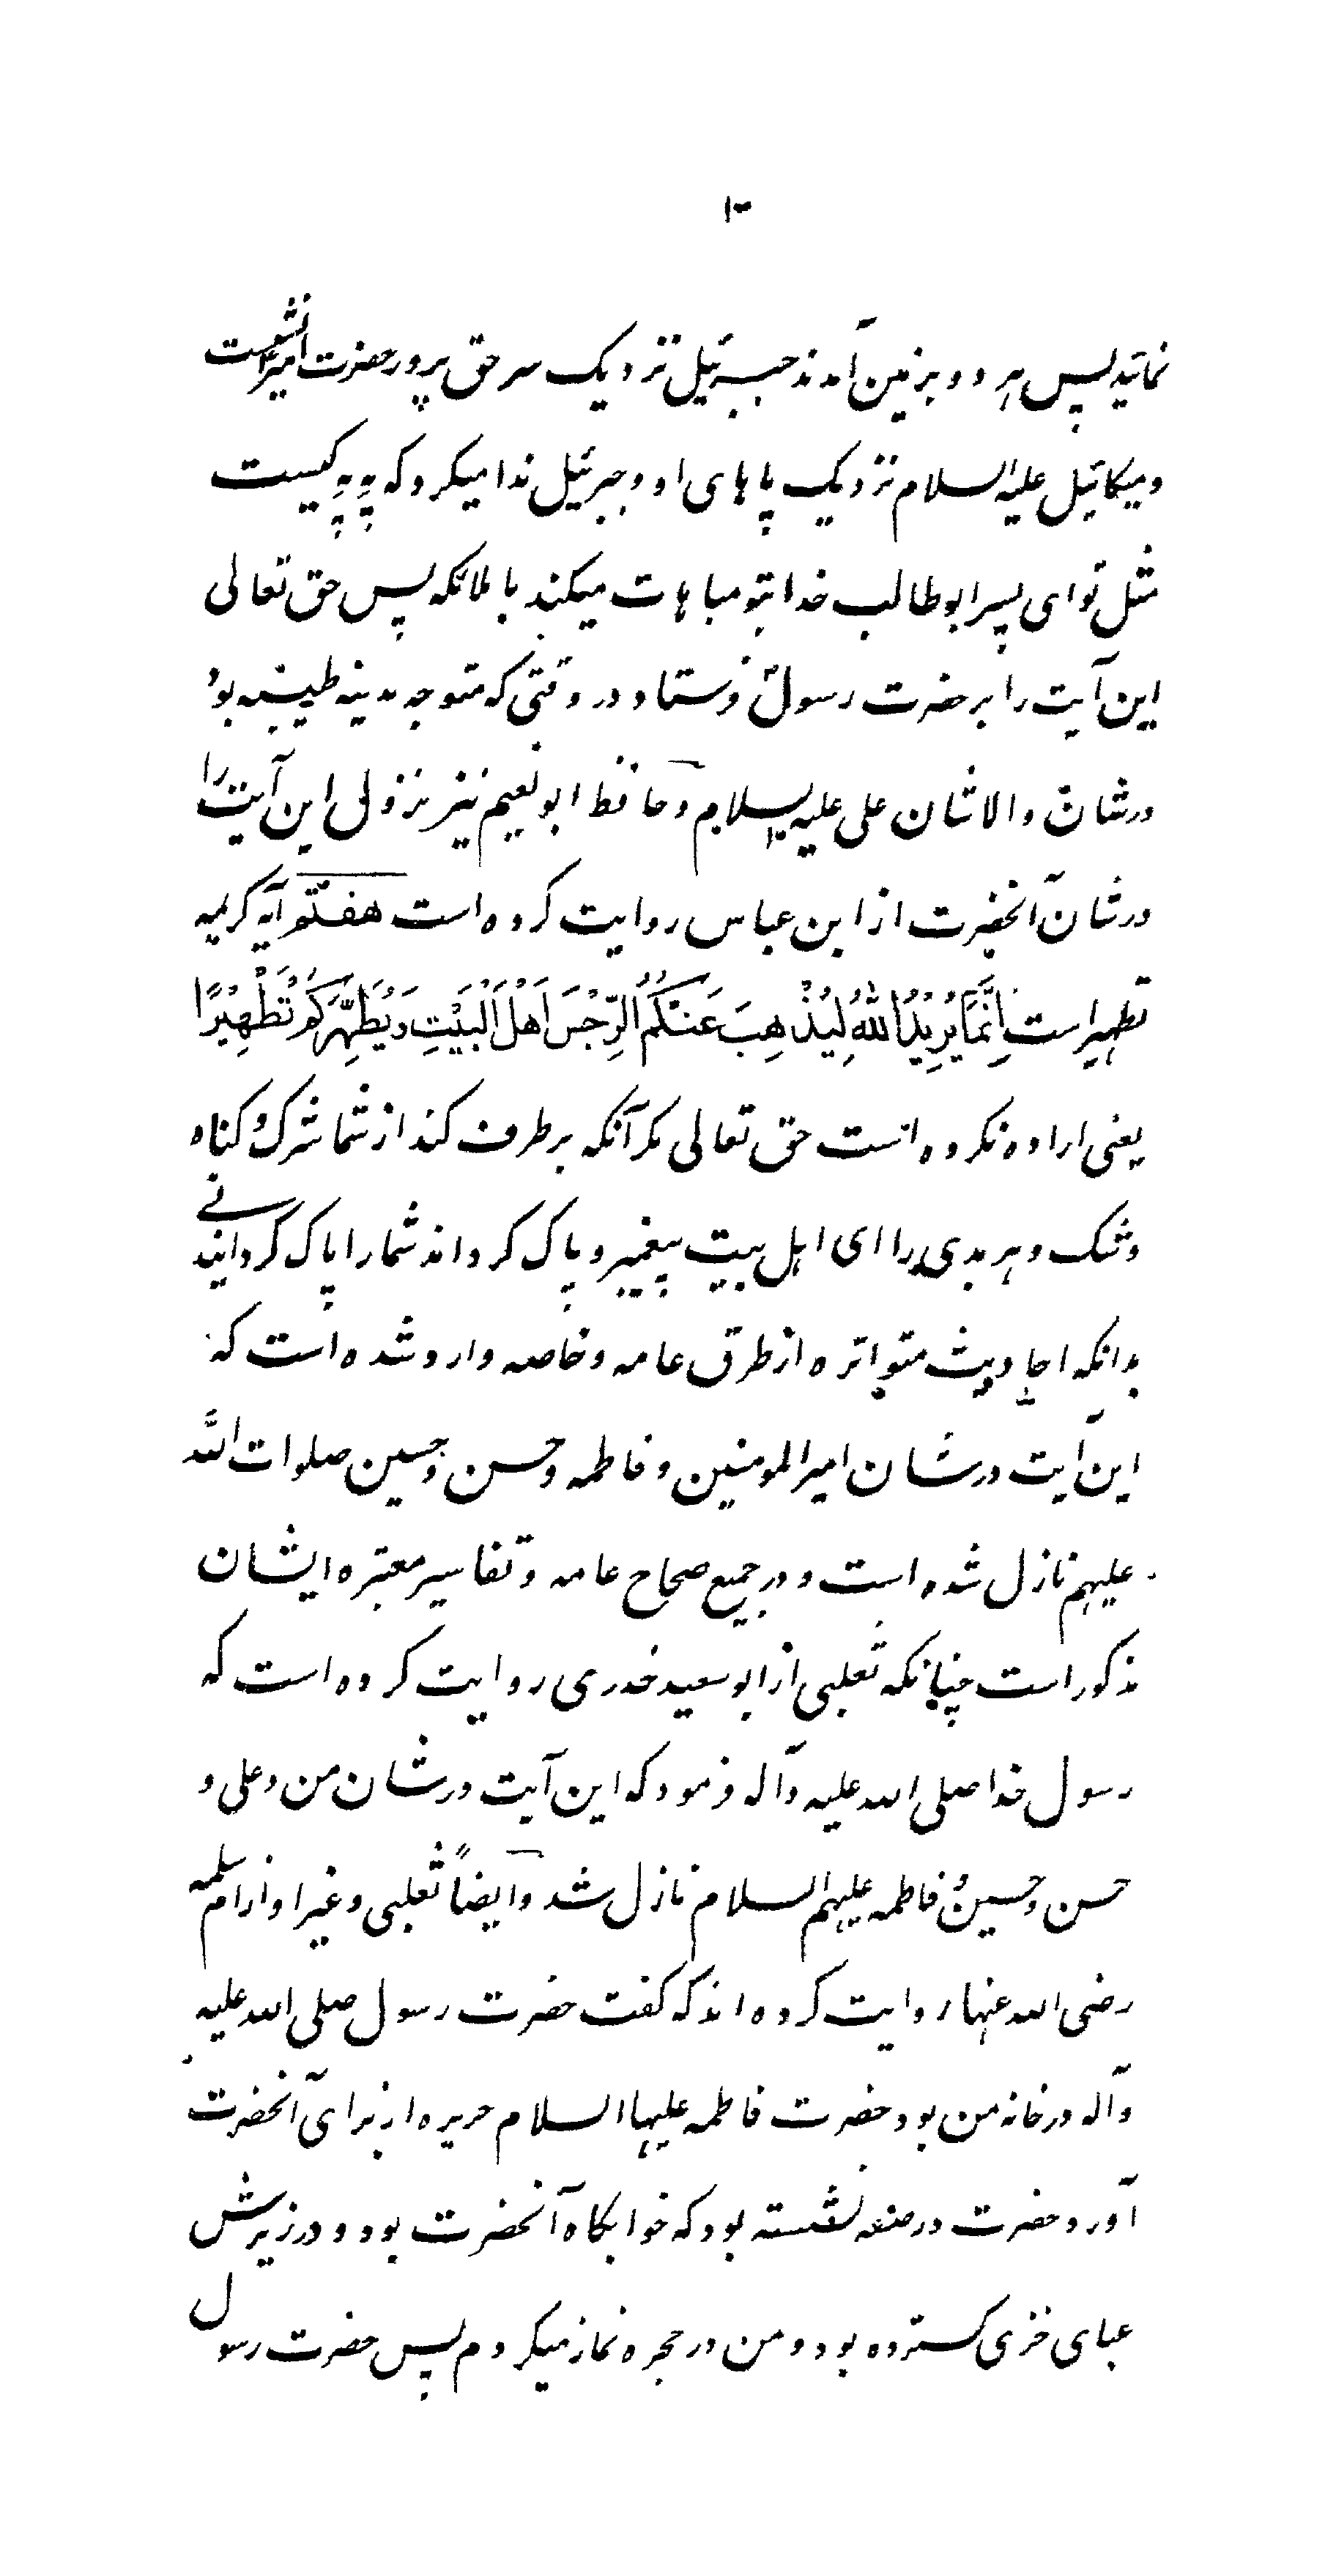 نمائید پس هر دو بزمین آمدند جبرئیل نزدیک سر حق پرور حضرت امیر نشست
و میکائیل علیه السلام نزدیک پاهای او و جبرئیل ندا میکرد که به به کیست
مثل تو ای پسر ابو طالب خدا بتو مباهات میکند با ملائکه پس حق تعالی
این آیت را بر حضرت رسول فرستاد در وقتی که متوجه مدینه طیبه بود
در شان والاشان علی علیه السلام و حافظ ابو نعیم نیز نزول این آیت را
در شان آنحضرت از ابن عباس روایت کرده است هفتم آیه کریمه
تطهیر است إِنَّمَا يُرِيدُ اللهُ لِيُذْهِبَ عَنْكُمُ الرِّجْسَ أَهْلَ الْبَيْتِ وَيُطَهِّرَكُمْ تَطْهِيرًا
یعنی اراده نکرده است حق تعالی مکر آنکه برطرف کند از شما شرک و کناه
و شک و هر بدی را ای اهل بیت پیغمبر و پاک کرداند شما را پاک گردانیدنے
بدانکه احادیث متواتره از طرق عامه و خاصه وارد شده است که
این آیت در شان امیر المومنین و فاطمه و حسن و حسین صلوات الله
علیهم نازل شده است و در جمیع صحاح عامه و تفاسیر معتبره ایشان
مذکور است چنانکه ثعلبی از ابو سعید خدری روایت کرده است که
رسول خدا صلی الله علیه و آله فرمود که این آیت در شان من و علی و
حسن و حسین و فاطمه علیهم السلام نازل شد و ایضاً ثعلبی و غیر او از ام سلمه
رضی الله عنها روایت کرده اند که کفت حضرت رسول صلی الله علیه
و آله در خانه من بود حضرت فاطمه علیها السلام حریره از برای آنحضرت
آورد و حضرت در صفه نشسته بود که خوابکاه آنحضرت بود و در زیرش
عبای خزی کسترده بود و من در حجره نماز میکردم پس حضرت رسول